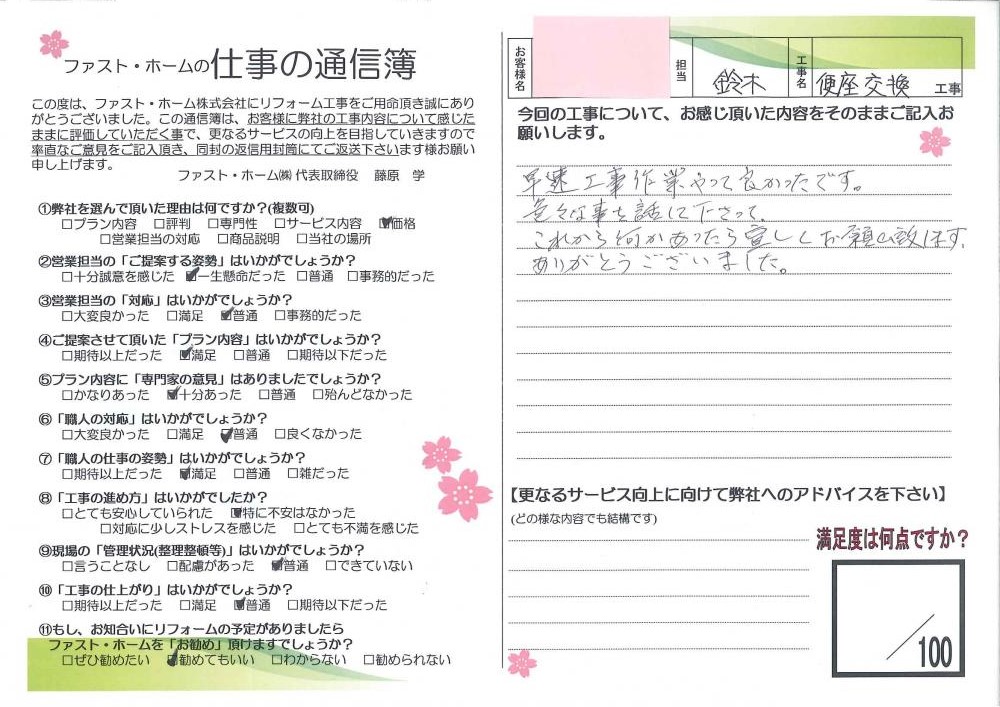 ファスト・ホームの仕事の通信簿
この度は、ファスト・ホーム株式会社にリフォーム工事をご用命頂き誠にあり
がとうございました。この通信簿は、お客様に弊社の工事内容について感じた
ままに評価していただく事で、更なるサービスの向上を目指していきますので
率直なご意見をご記入頂き、同封の返信用封筒にてご返送下さいます様お願い
申し上げます。
ファスト・ホーム㈱ 代表取締役 藤原 学
①弊社を選んで頂いた理由は何ですか？(複数可)
□プラン内容 □評判 □専門性 □サービス内容 ☑価格
□営業担当の対応 □商品説明 □当社の場所
②営業担当の「ご提案する姿勢」はいかがでしょうか？
□十分誠意を感じた ☑一生懸命だった □普通 □事務的だった
③営業担当の「対応」はいかがでしょうか？
□大変良かった □満足 ☑普通 □事務的だった
④ご提案させて頂いた「プラン内容」はいかがでしょうか？
□期待以上だった ☑満足 □普通 □期待以下だった
⑤プラン内容に「専門家の意見」はありましたでしょうか？
□かなりあった ☑十分あった □普通 □殆んどなかった
⑥「職人の対応」はいかがでしょうか？
□大変良かった □満足 ☑普通 □良くなかった
⑦「職人の仕事の姿勢」はいかがでしょうか？
□期待以上だった ☑満足 □普通 □雑だった
⑧「工事の進め方」はいかがでしたか？
□とても安心していられた ☑特に不安はなかった
□対応に少しストレスを感じた □とても不満を感じた
⑨現場の「管理状況(整理整頓等)」はいかがでしょうか？
□言うことなし □配慮があった ☑普通 □できていない
⑩「工事の仕上がり」はいかがでしょうか？
□期待以上だった □満足 ☑普通 □期待以下だった
⑪もし、お知合いにリフォームの予定がありましたら
ファスト・ホームを「お勧め」頂けますでしょうか？
□ぜひ勧めたい ☑勧めてもいい □わからない □勧められない
お客様名 担当 鈴木 工事名 便座交換 工事
今回の工事について、お感じ頂いた内容をそのままご記入お
願いします。
早速工事作業やって良かったです。
色々な事を話して下さって、
これから何かあったら宜しくお願い致します。
ありがとうございました。
【更なるサービス向上に向けて弊社へのアドバイスを下さい】
(どの様な内容でも結構です)
満足度は何点ですか？
／100